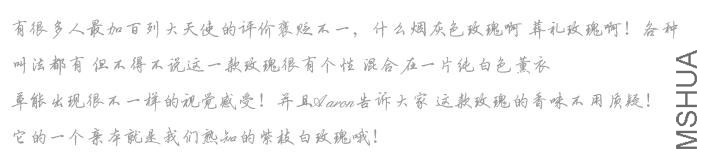 有很多人最加百列大天使的评价褒贬不一，什么烟灰色玫瑰啊 葬礼玫瑰啊！各种
叫法都有 但不得不说这一款玫瑰很有个性 混合在一片纯白色薰衣
草能出现很不一样的视觉感受！并且Aaron告诉大家 这款玫瑰的香味不用质疑！
它的一个亲本就是我们熟知的紫枝白玫瑰哦！
MSHUA